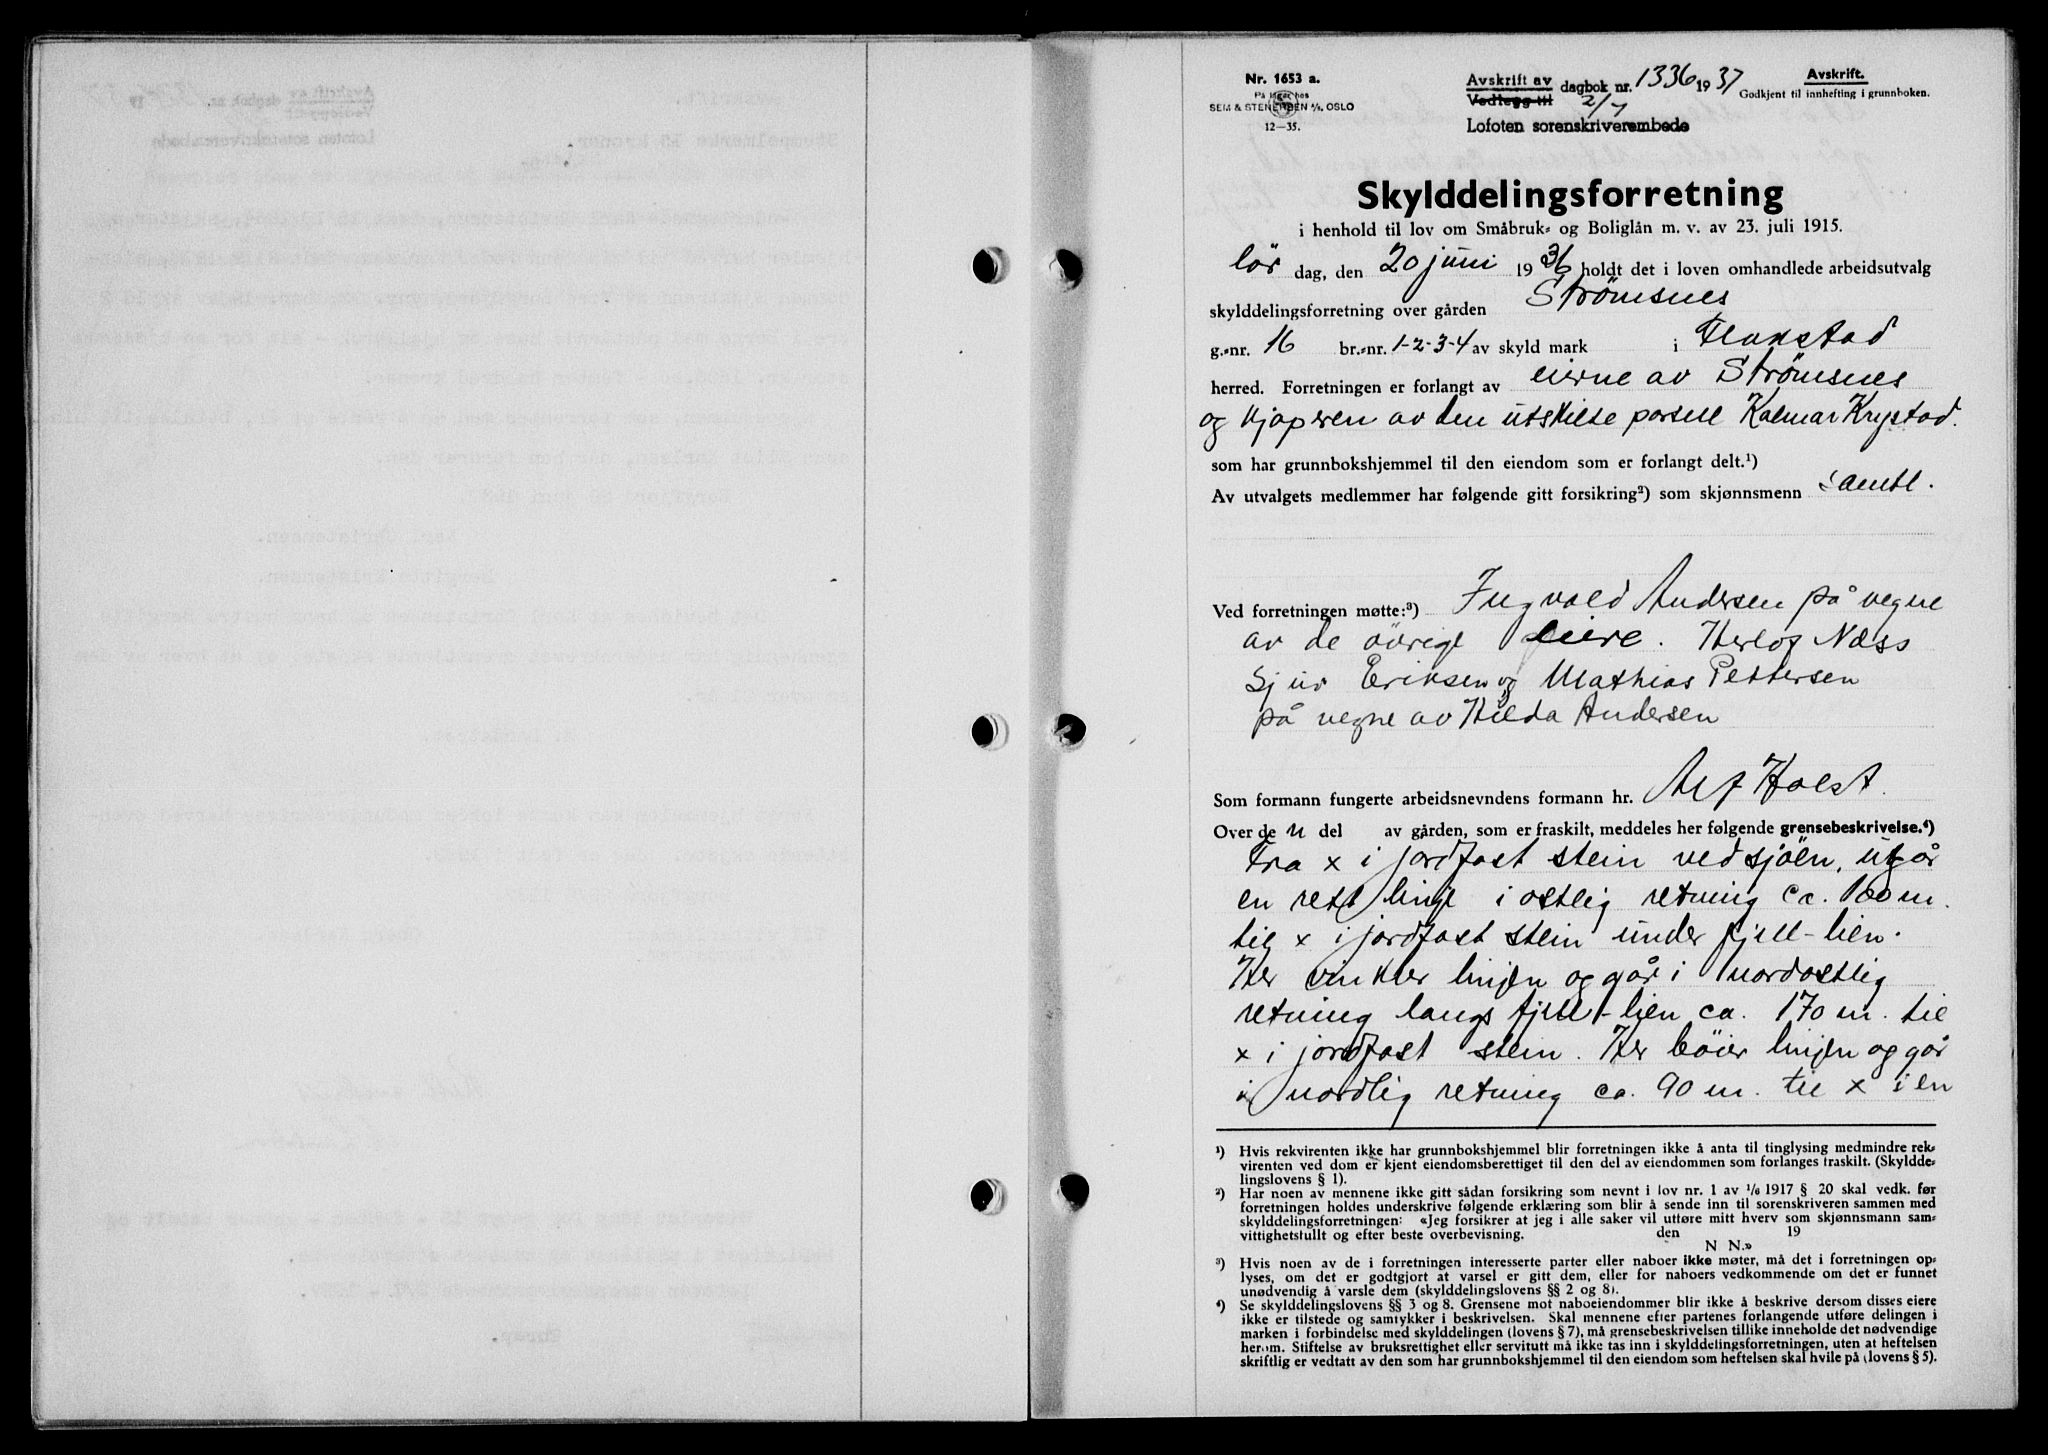 Nr. 1653 a.
På lager hos
SEM & STENERSEN A/S, OSLO
12—35.
Avskrift av dagbok nr. 1336 1937
Vedlegg til 2/7
Lofoten sorenskriverembede
Avskrift.
Godkjent til innhefting i grunnboken.
Skylddelingsforretning
i henhold til lov om Småbruk- og Boliglån m. v. av 23. juli 1915.
lör dag, den 20 juni 1936 holdt det i loven omhandlede arbeidsutvalg
skylddelingsforretning over gården Strömsnes
g.-nr. 16 br.-nr. 1-2-3-4 av skyld mark i Flakstad
herred. Forretningen er forlangt av eierne av Strömsnes
og kjøperen av den utskilte parsell Kalmar Krystad.
som har grunnbokshjemmel til den eiendom som er forlangt delt.¹)
Av utvalgets medlemmer har følgende gitt forsikring²) som skjønnsmenn samtl.
Ved forretningen møtte:³) Ingvald Andersen på vegne
av de övrige eiere. Herlof Næss
Sjur Eriksen og Mathias Pettersen
på vegne av Hilda Andersen
Som formann fungerte arbeidsnevndens formann hr. Alf Holst.
Over den del av gården, som er fraskilt, meddeles her følgende grensebeskrivelse.⁴)
Fra x i jordfast stein ved sjöen, utgår
en rett linje i ostlig retning ca. 100 m.
til x i jordfast stein under fjell-lien.
Her vinkler linjen og går i nordostlig
retning langs fjell-lien ca. 170 m. til
x i jordfast stein. Her böier linjen og går
i nordlig retning ca. 90 m. til x i en
¹) Hvis rekvirenten ikke har grunnbokshjemmel blir forretningen ikke å anta til tinglysing medmindre rek-
virenten ved dom er kjent eiendomsberettiget til den del av eiendommen som forlanges fraskilt. (Skyldde-
lingslovens § 1).
²) Har noen av mennene ikke gitt sådan forsikring som nevnt i lov nr. 1 av 1/6 1917 § 20 skal vedk. før
forretningen holdes underskrive følgende erklæring som blir å sende inn til sorenskriveren sammen med
skylddelingsforretningen: «Jeg forsikrer at jeg i alle saker vil utføre mitt hverv som skjønnsmann sam-
vittighetsfullt og efter beste overbevisning. den 19
N N.»
³) Hvis noen av de i forretningen interesserte parter eller naboer ikke møter, må det i forretningen op-
lyses, om det er godtgjort at varsel er gitt dem, eller for naboers vedkommende om det er funnet
unødvendig å varsle dem (skylddelingslovens §§ 2 og 8).
⁴) Se skylddelingslovens §§ 3 og 8. Grensene mot naboeiendommer blir ikke å beskrive dersom disses eiere
ikke er tilstede og samtykker i beskrivelsen. Skal mennene efter partenes forlangende utføre delingen i
marken i forbindelse med skylddelingen (lovens § 7), må grensebeskrivelsen tillike inneholde det nødvendige
herom. Stiftelse av bruksrettighet eller servitutt må ikke tas inn i skylddelingsforretningen, uten at heftelsen
skriftlig er vedtatt av den som har grunnbokshjemmel til den eiendom som heftelsen skal hvile på (lovens § 5).